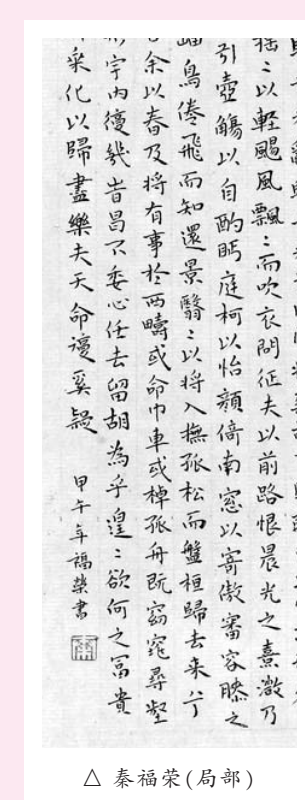 搖〻以軽颺風飄〻而吹衣問征夫以前路恨晨光之熹微乃
引壺觴以自酌眄庭柯以怡顏倚南窓以寄傲審容膝之
岫鳥倦飛而知還景翳〻以将入撫孤松而盤桓歸去来兮
余以春及将有事於西疇或命巾車或棹孤舟既窈窕尋壑
形宇内復幾旹曷不委心任去留胡為乎遑〻欲何之冨貴
乗化以歸盡樂夫天命復奚疑
甲午年福榮書
△ 秦福荣(局部)